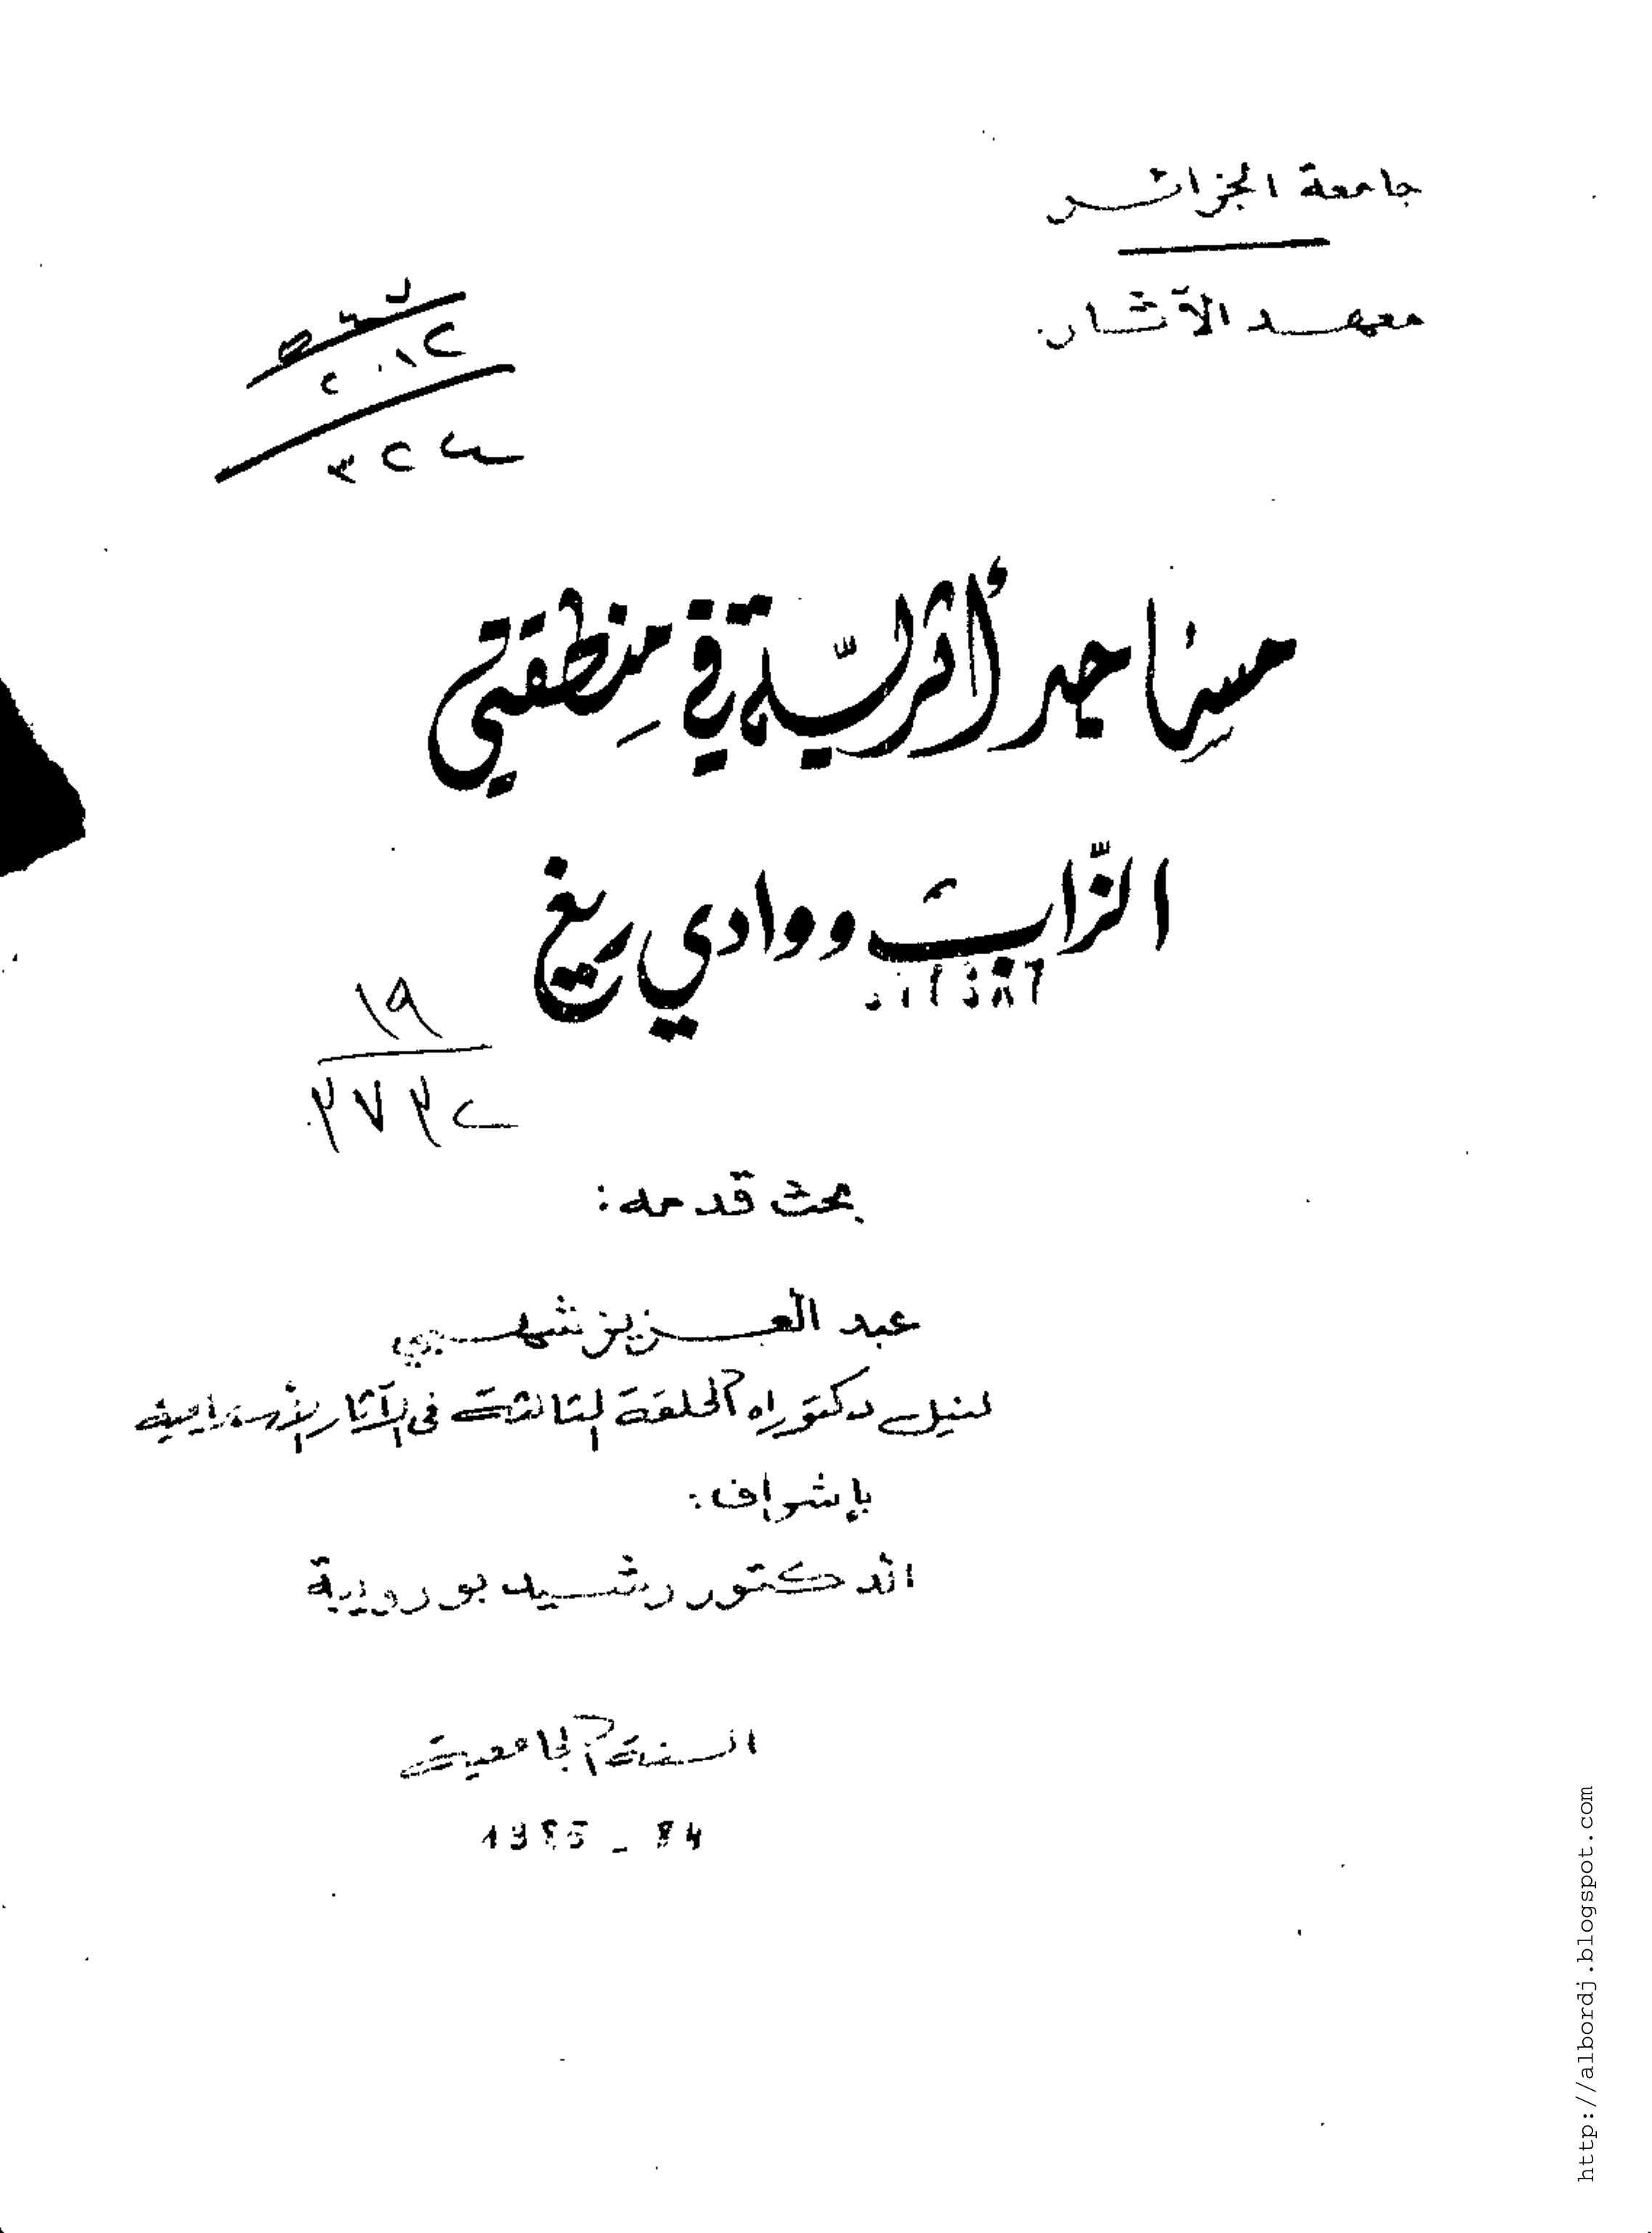 جامعة الجزائر
معهد الآثار
مساجد أثريّة في منطقتي
الزّاب ووادي ريغ
بحث قدمه:
عبد العزيز شهبي
لنيل دكتوراه الحلقة الثالثة في الآثار الإسلامية
بإشراف:
الدكتور رشيد بورويبة
السنة الجامعية
1985 - 84
http://albordj.blogspot.com